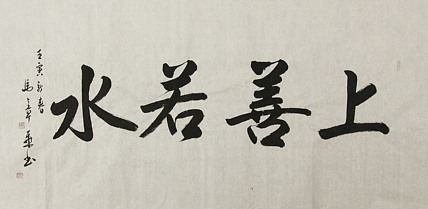 上善若水
壬寅新春
馬　　書